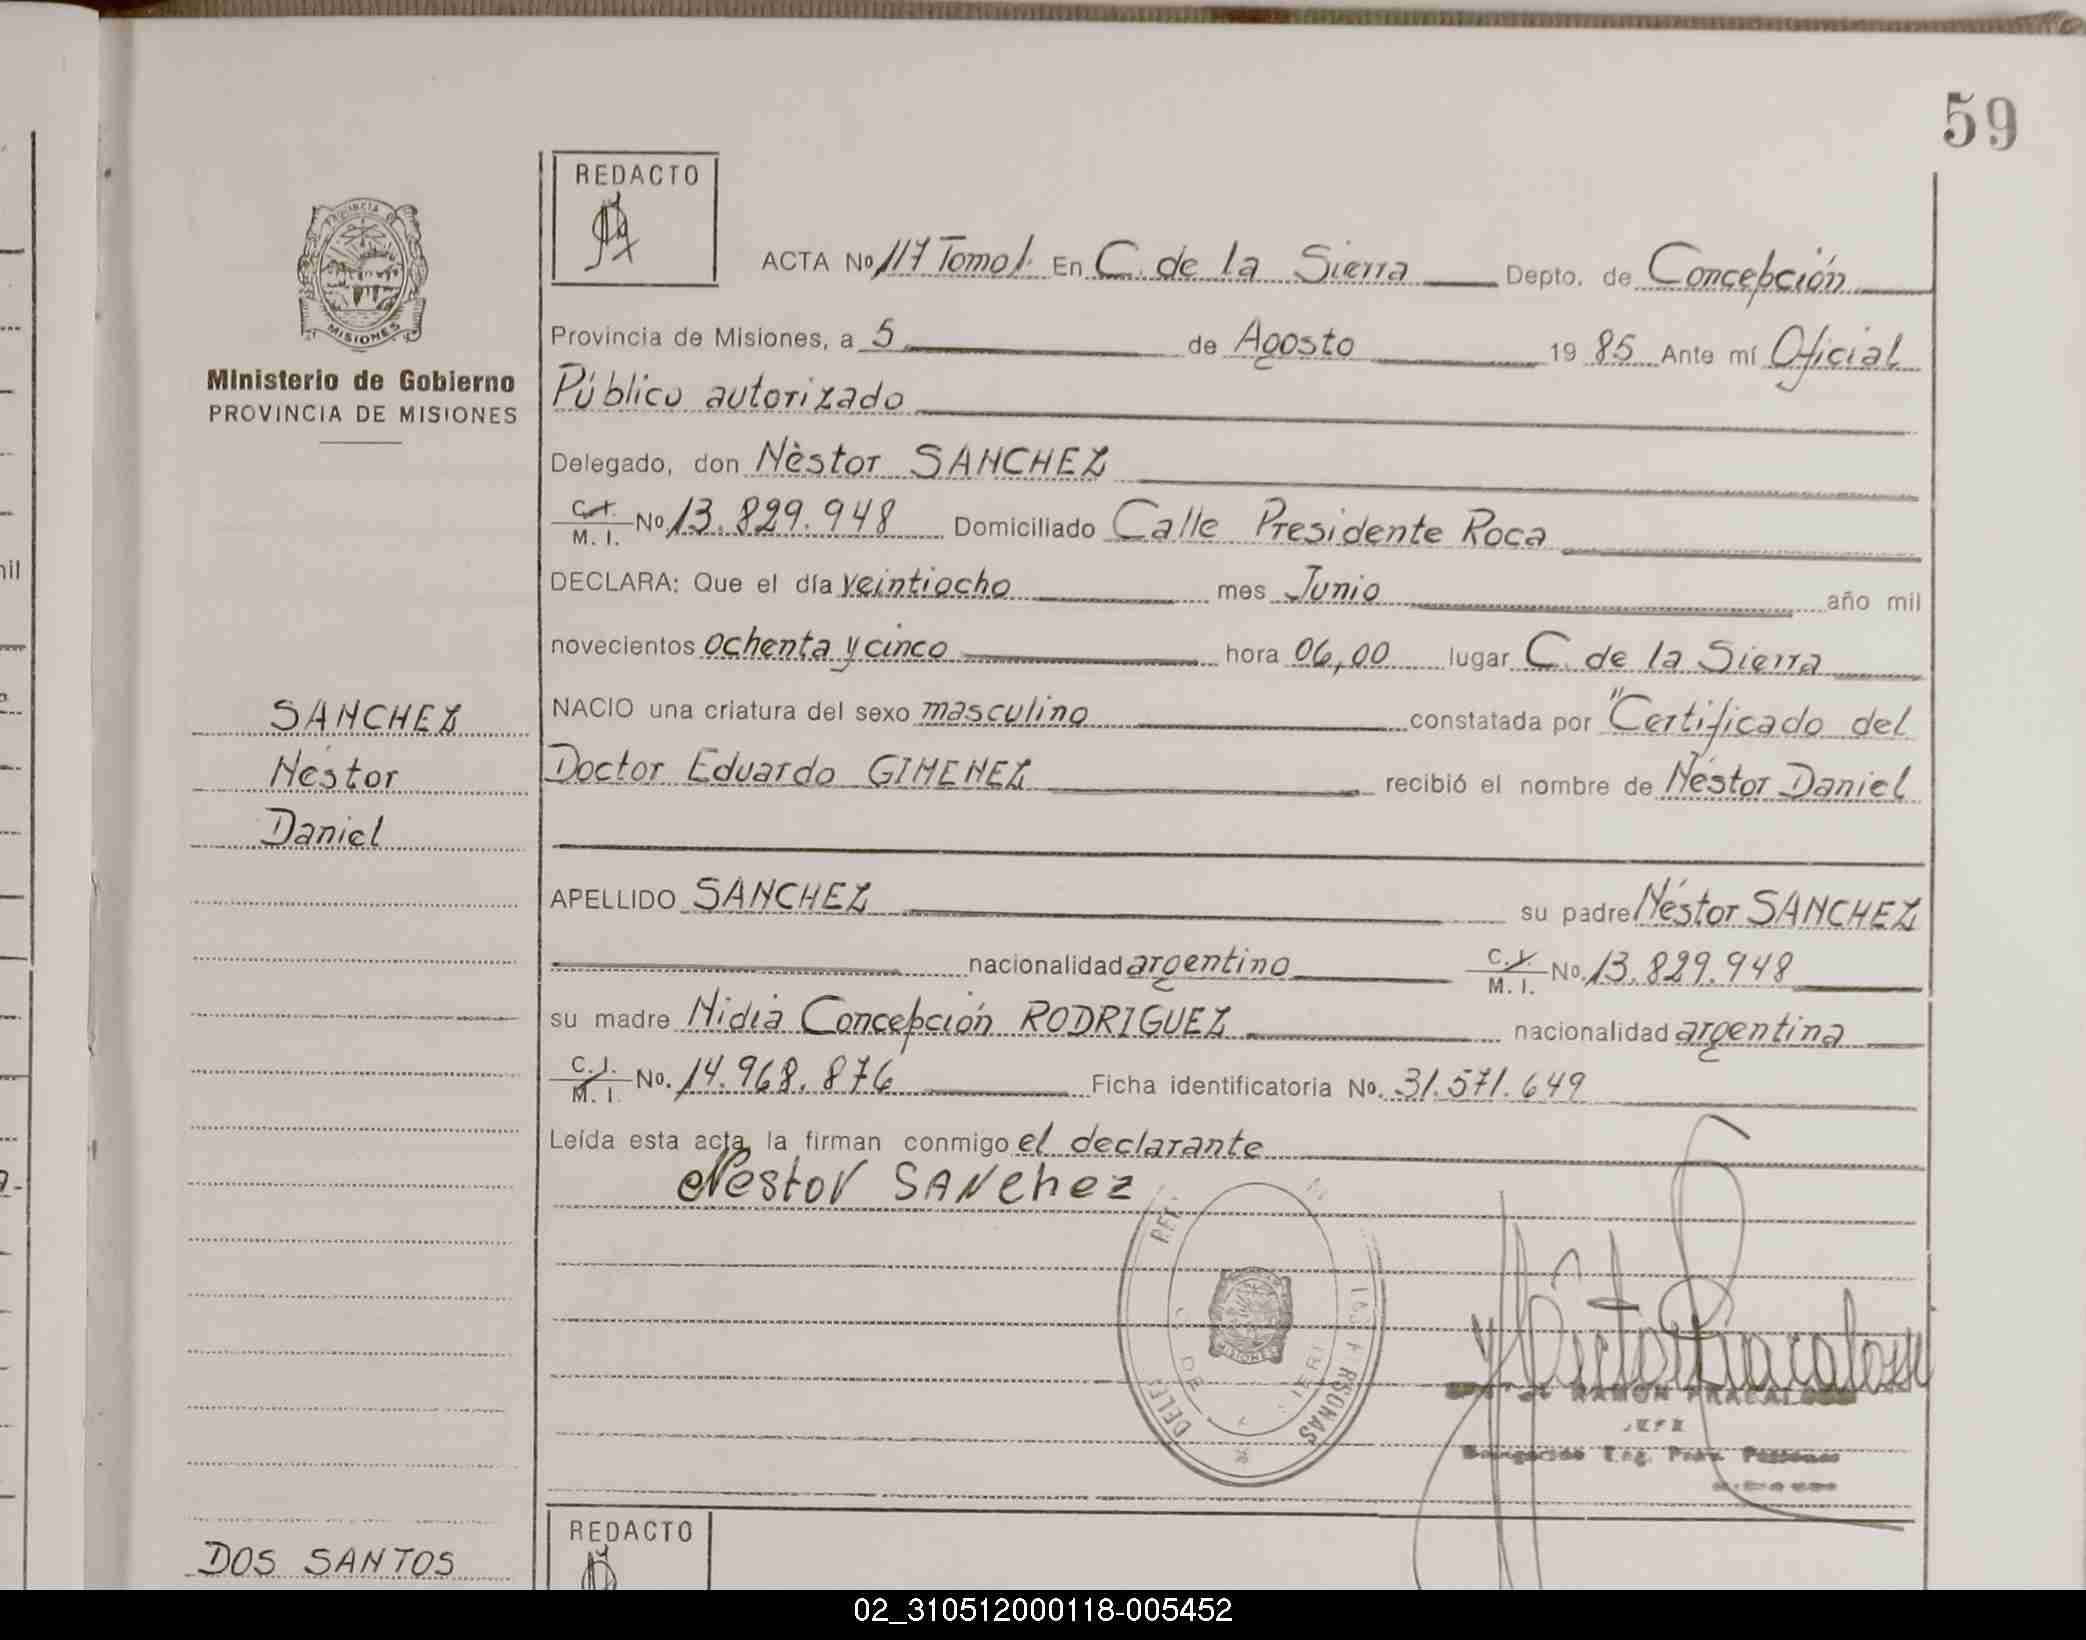 59
REDACTO
ACTA Nº 117 Tomo I. En C. de la Sierra Depto. de Concepción
PROVINCIA DE
MISIONES
Provincia de Misiones, a 5 de Agosto 19 85 Ante mí Oficial
Ministerio de Gobierno
PROVINCIA DE MISIONES
Público autorizado
Delegado, don Nèstor SANCHEZ
C.I.
M. I. Nº 13.829.948 Domiciliado Calle Presidente Roca
DECLARA: Que el día veintiocho mes Junio año mil
novecientos ochenta y cinco hora 06,00 lugar C. de la Sierra
NACIO una criatura del sexo masculino constatada por "Certificado del
Doctor Eduardo GIMENEZ recibió el nombre de Néstor Daniel
SANCHEZ
Néstor
Daniel
APELLIDO SANCHEZ su padre Néstor SANCHEZ
nacionalidad argentino C.I.
M. I. No. 13.829.948
su madre Nidia Concepción RODRIGUEZ nacionalidad argentina
C.I.
M. I. No. 14.968.876 Ficha identificatoria No. 31.571.649
Leída esta acta, la firman conmigo el declarante
Nestor SANchez
RAMON FRACALOSSI
JEFE
Delegación Reg. Prov. Personas
DOS SANTOS
REDACTO
nil
02_310512000118-005452